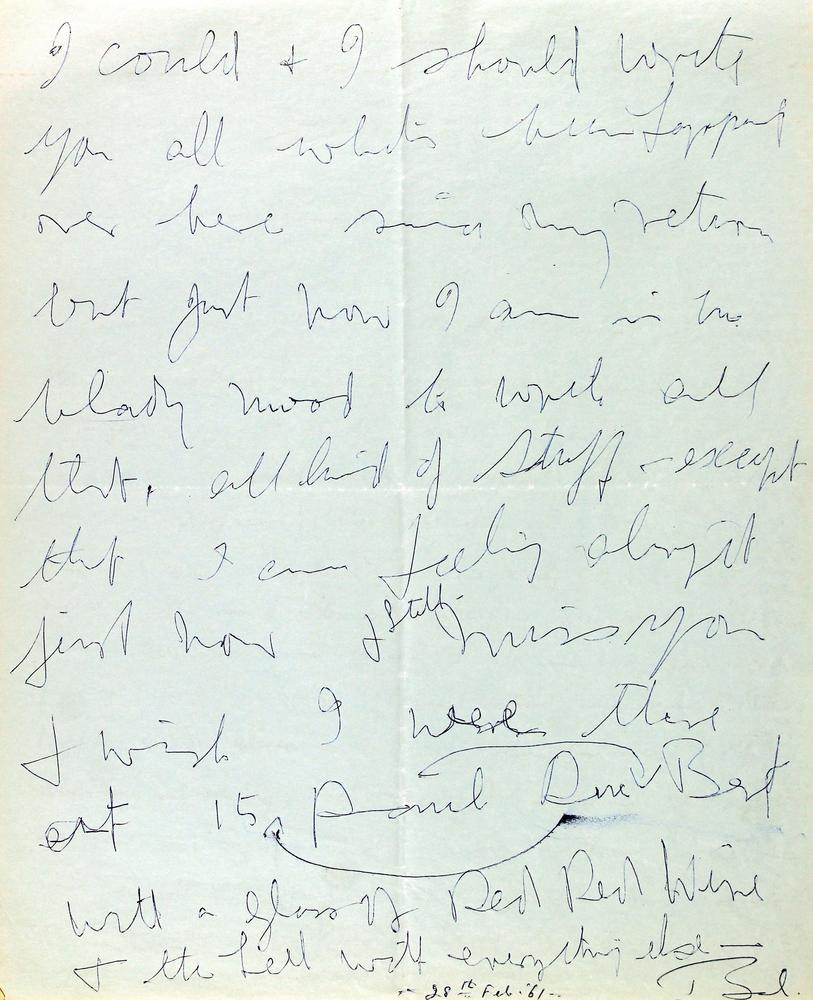 I could & I should write
you all what's been happend
over here since my return
but just now I am in no
blady mood to write all
that, all kind of stuff - except
that I am feeling alright
just now & still miss you
& wish I were there
at 15, Paul Rue Bert
with a glass of Red Red Wine
& the Hell with everything else —
28th Feb. '61